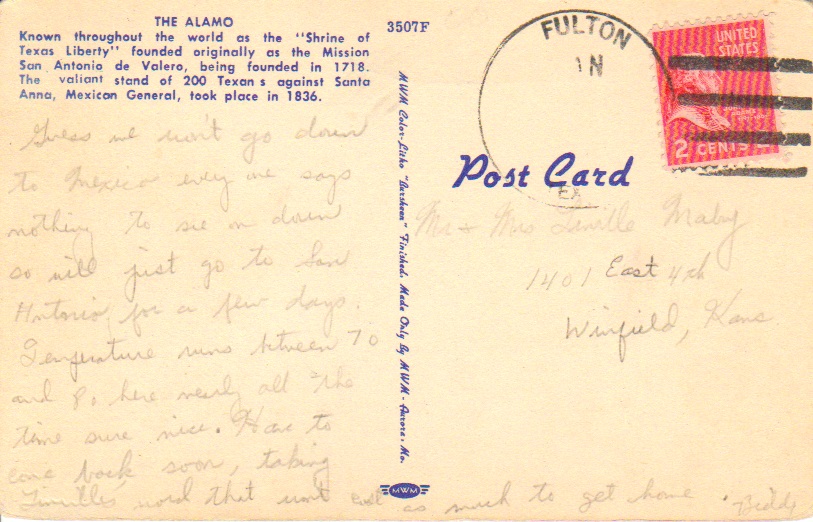 THE ALAMO
Known throughout the world as the "Shrine of
Texas Liberty" founded originally as the Mission
San Antonio de Valero, being founded in 1718.
The valiant stand of 200 Texans against Santa
Anna, Mexican General, took place in 1836.
3507F
Guess we won't go down
to Mexico every one says
nothing to see on down
so will just go to San
Antonio for a few days.
Temperature runs between 70
and 80 here nearly all the
time sure nice. Have to
come back soon, taking
Linville's word that wont cost as much to get home.
MWM Color-Litho "Larsheen" Finished. Made Only By MWM - Aurora, Mo.
MWM
FULTON
TEX.
UNITED
STATES
2 CENTS 2
Post Card
Mr & Mrs Linville Maby
1401 East 4th
Winfield, Kans